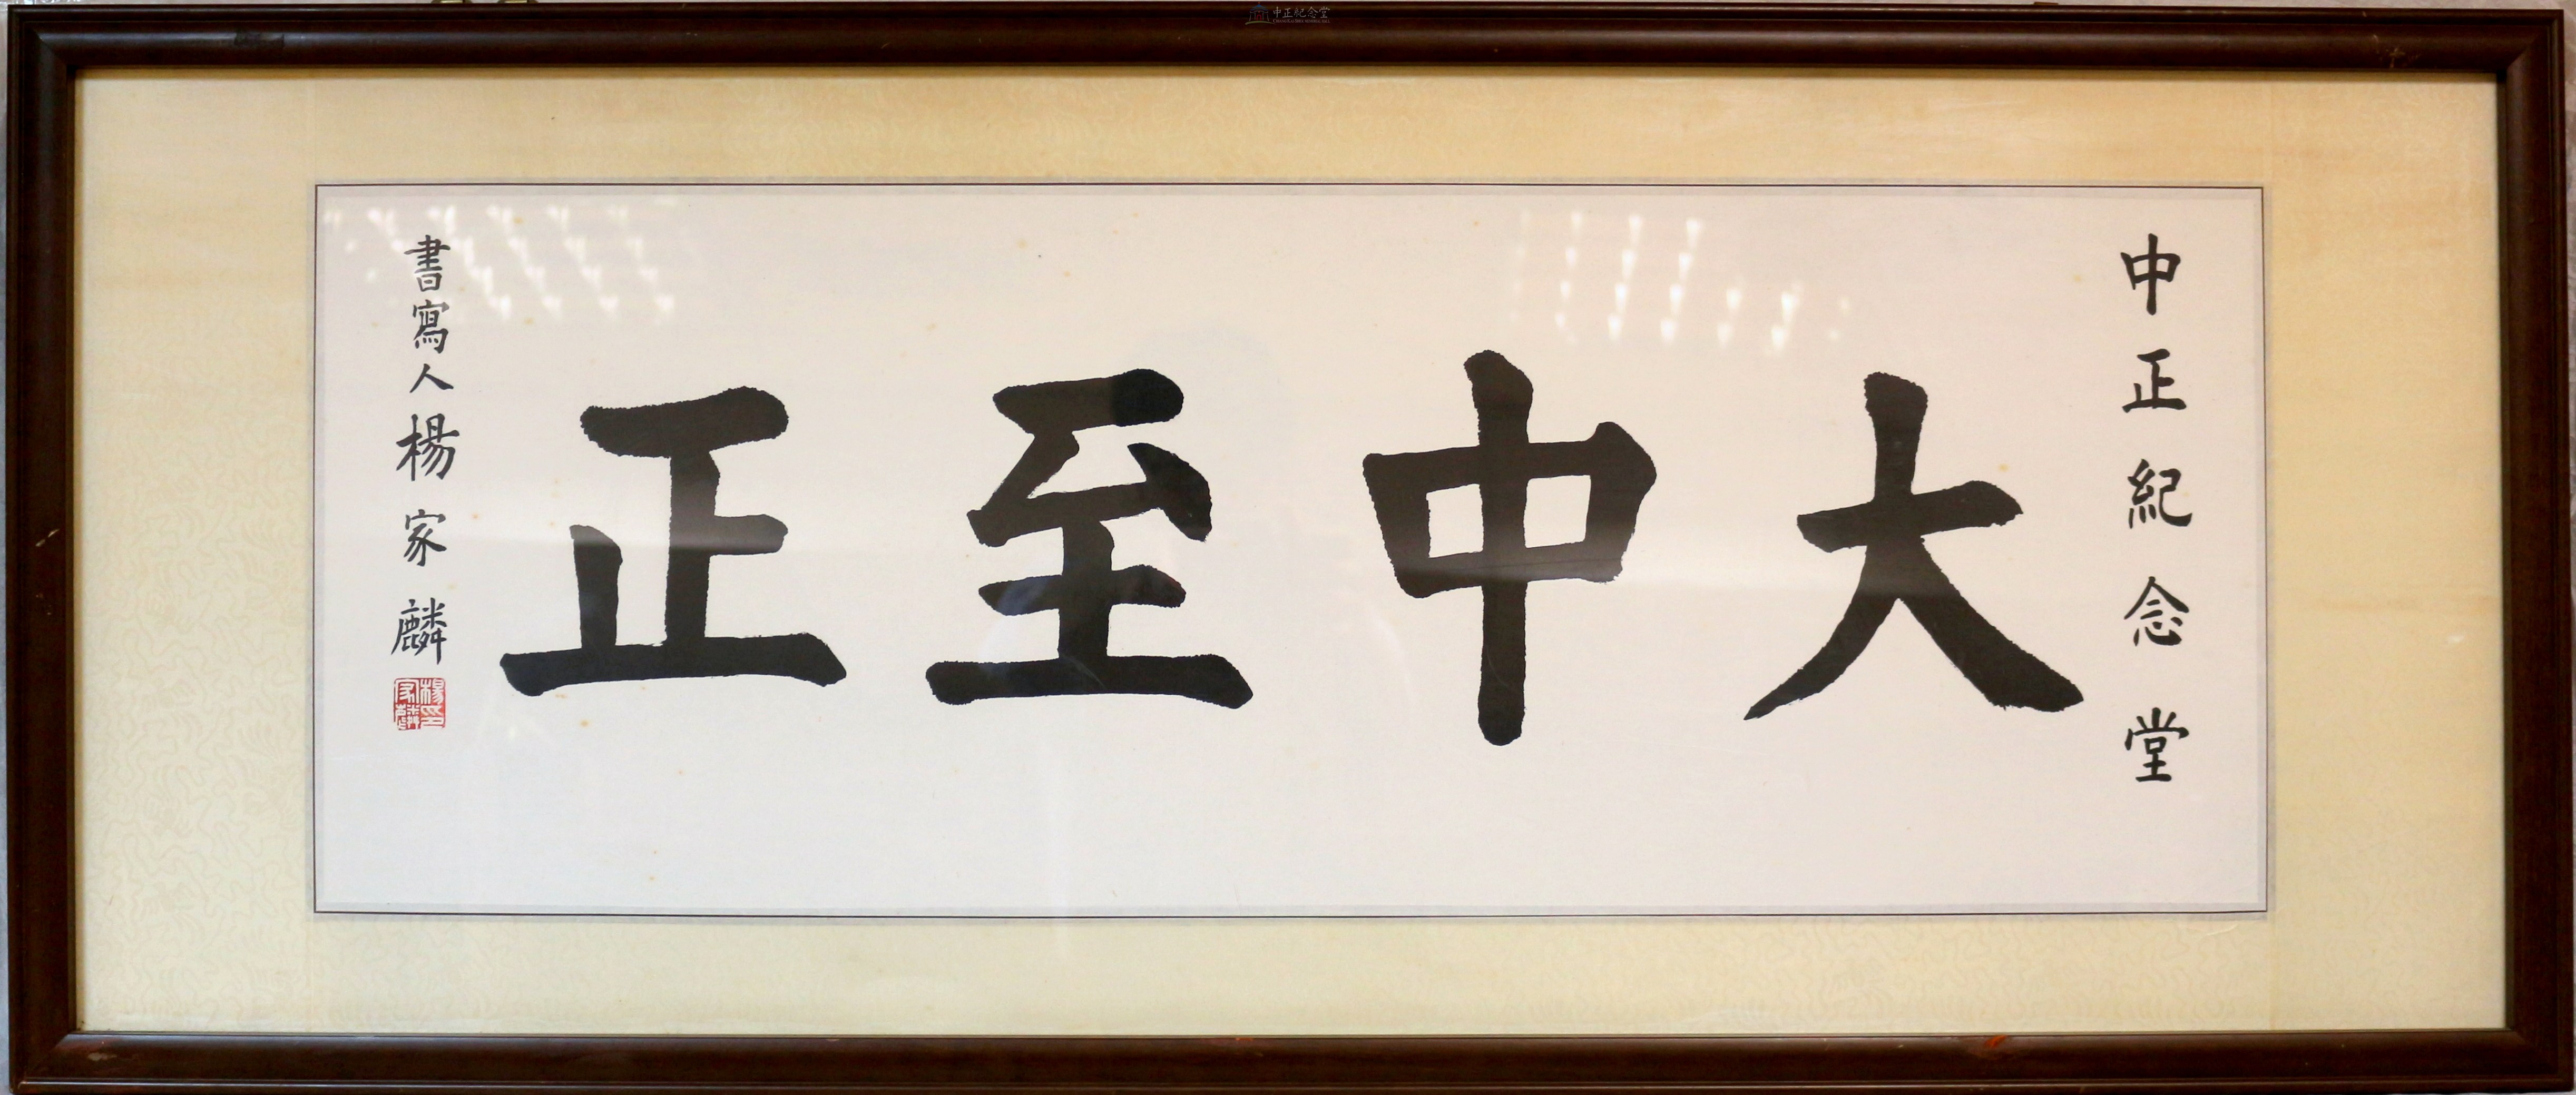 中正紀念堂
中正紀念堂
大中至正
書寫人楊家麟
楊家麟印